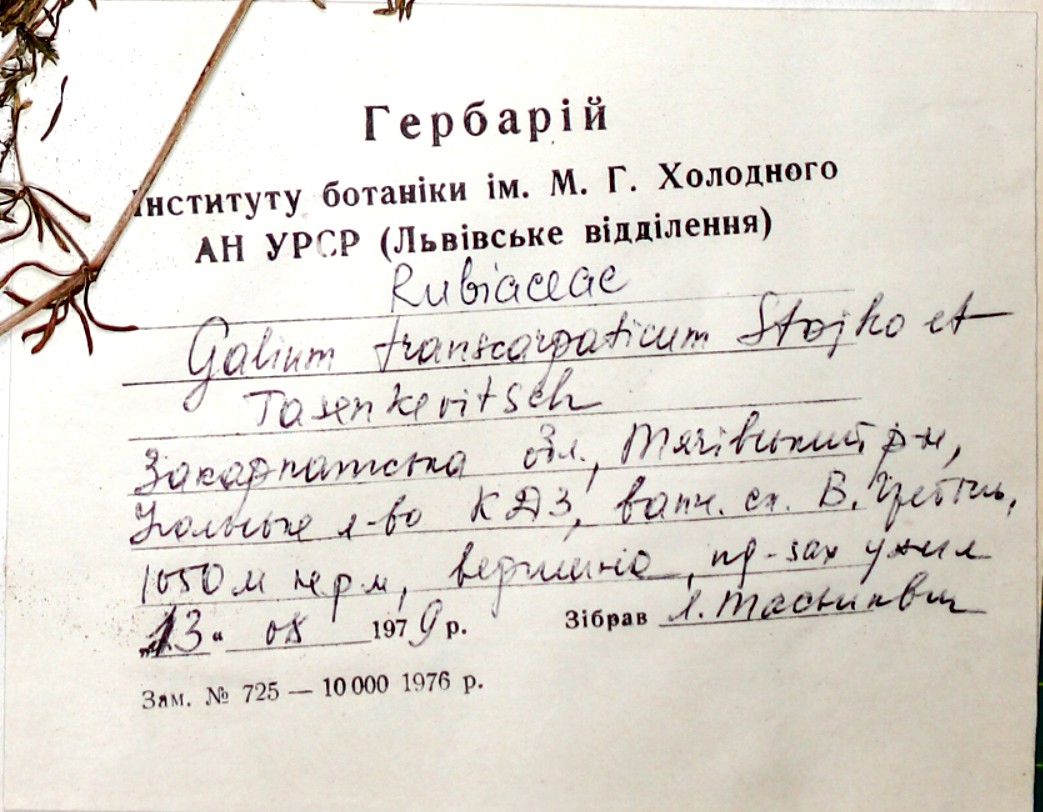 Гербарій
Інституту ботаніки ім. М. Г. Холодного
АН УРСР (Львівське відділення)
Rubiaceae
Galium transcarpaticum Stojko et
Tasenkevitsch
Закарпатська обл., Тячівський р-н,
Угольське л-во КДЗ, вапн. ск. В. Гребінь,
1050 м н.р.м, вершина, пд-зах ухил
„13“ 08 1979 р. Зібрав Л. Тасєнкевич
Зам. № 725 — 10 000 1976 р.